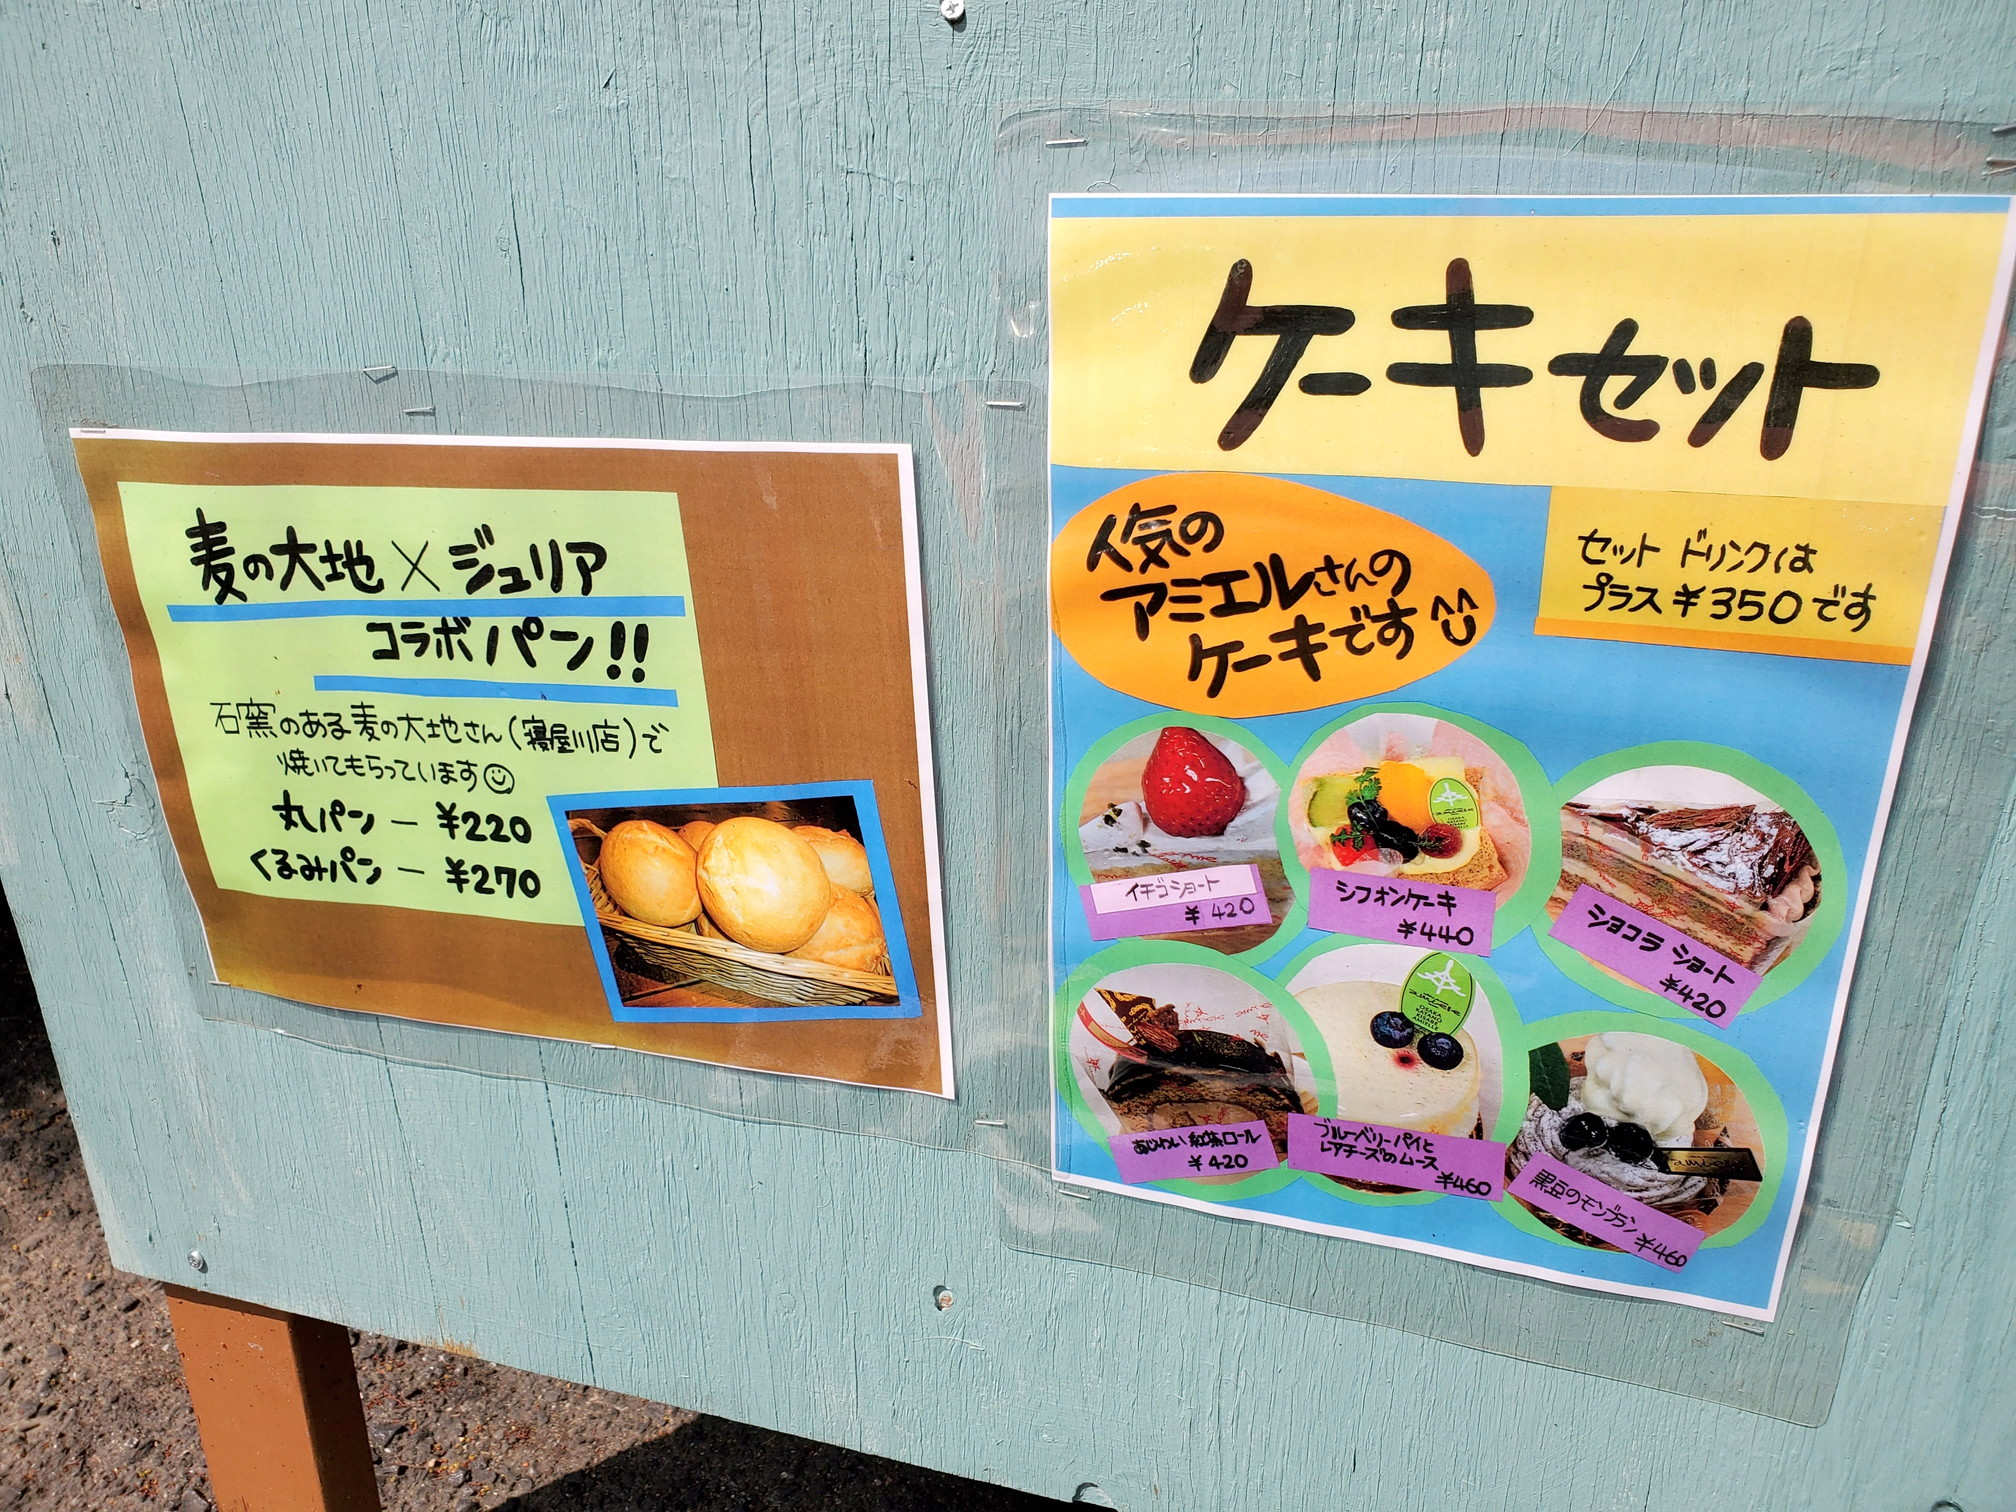 麦の大地×ジュリア
コラボパン!!
石窯のある麦の大地さん(寝屋川店)で
焼いてもらっています
丸パン ー ¥220
くるみパン ー ¥270
ケーキセット
人気の
アミエルさんの
ケーキです
セット ドリンクは
プラス ¥350です
イチゴショート
¥420
シフォンケーキ
¥440
ショコラ ショート
¥420
あじわい 紅茶ロール
¥420
ブルーベリーパイと
レアチーズのムース
¥460
黒豆のモンブラン
¥460